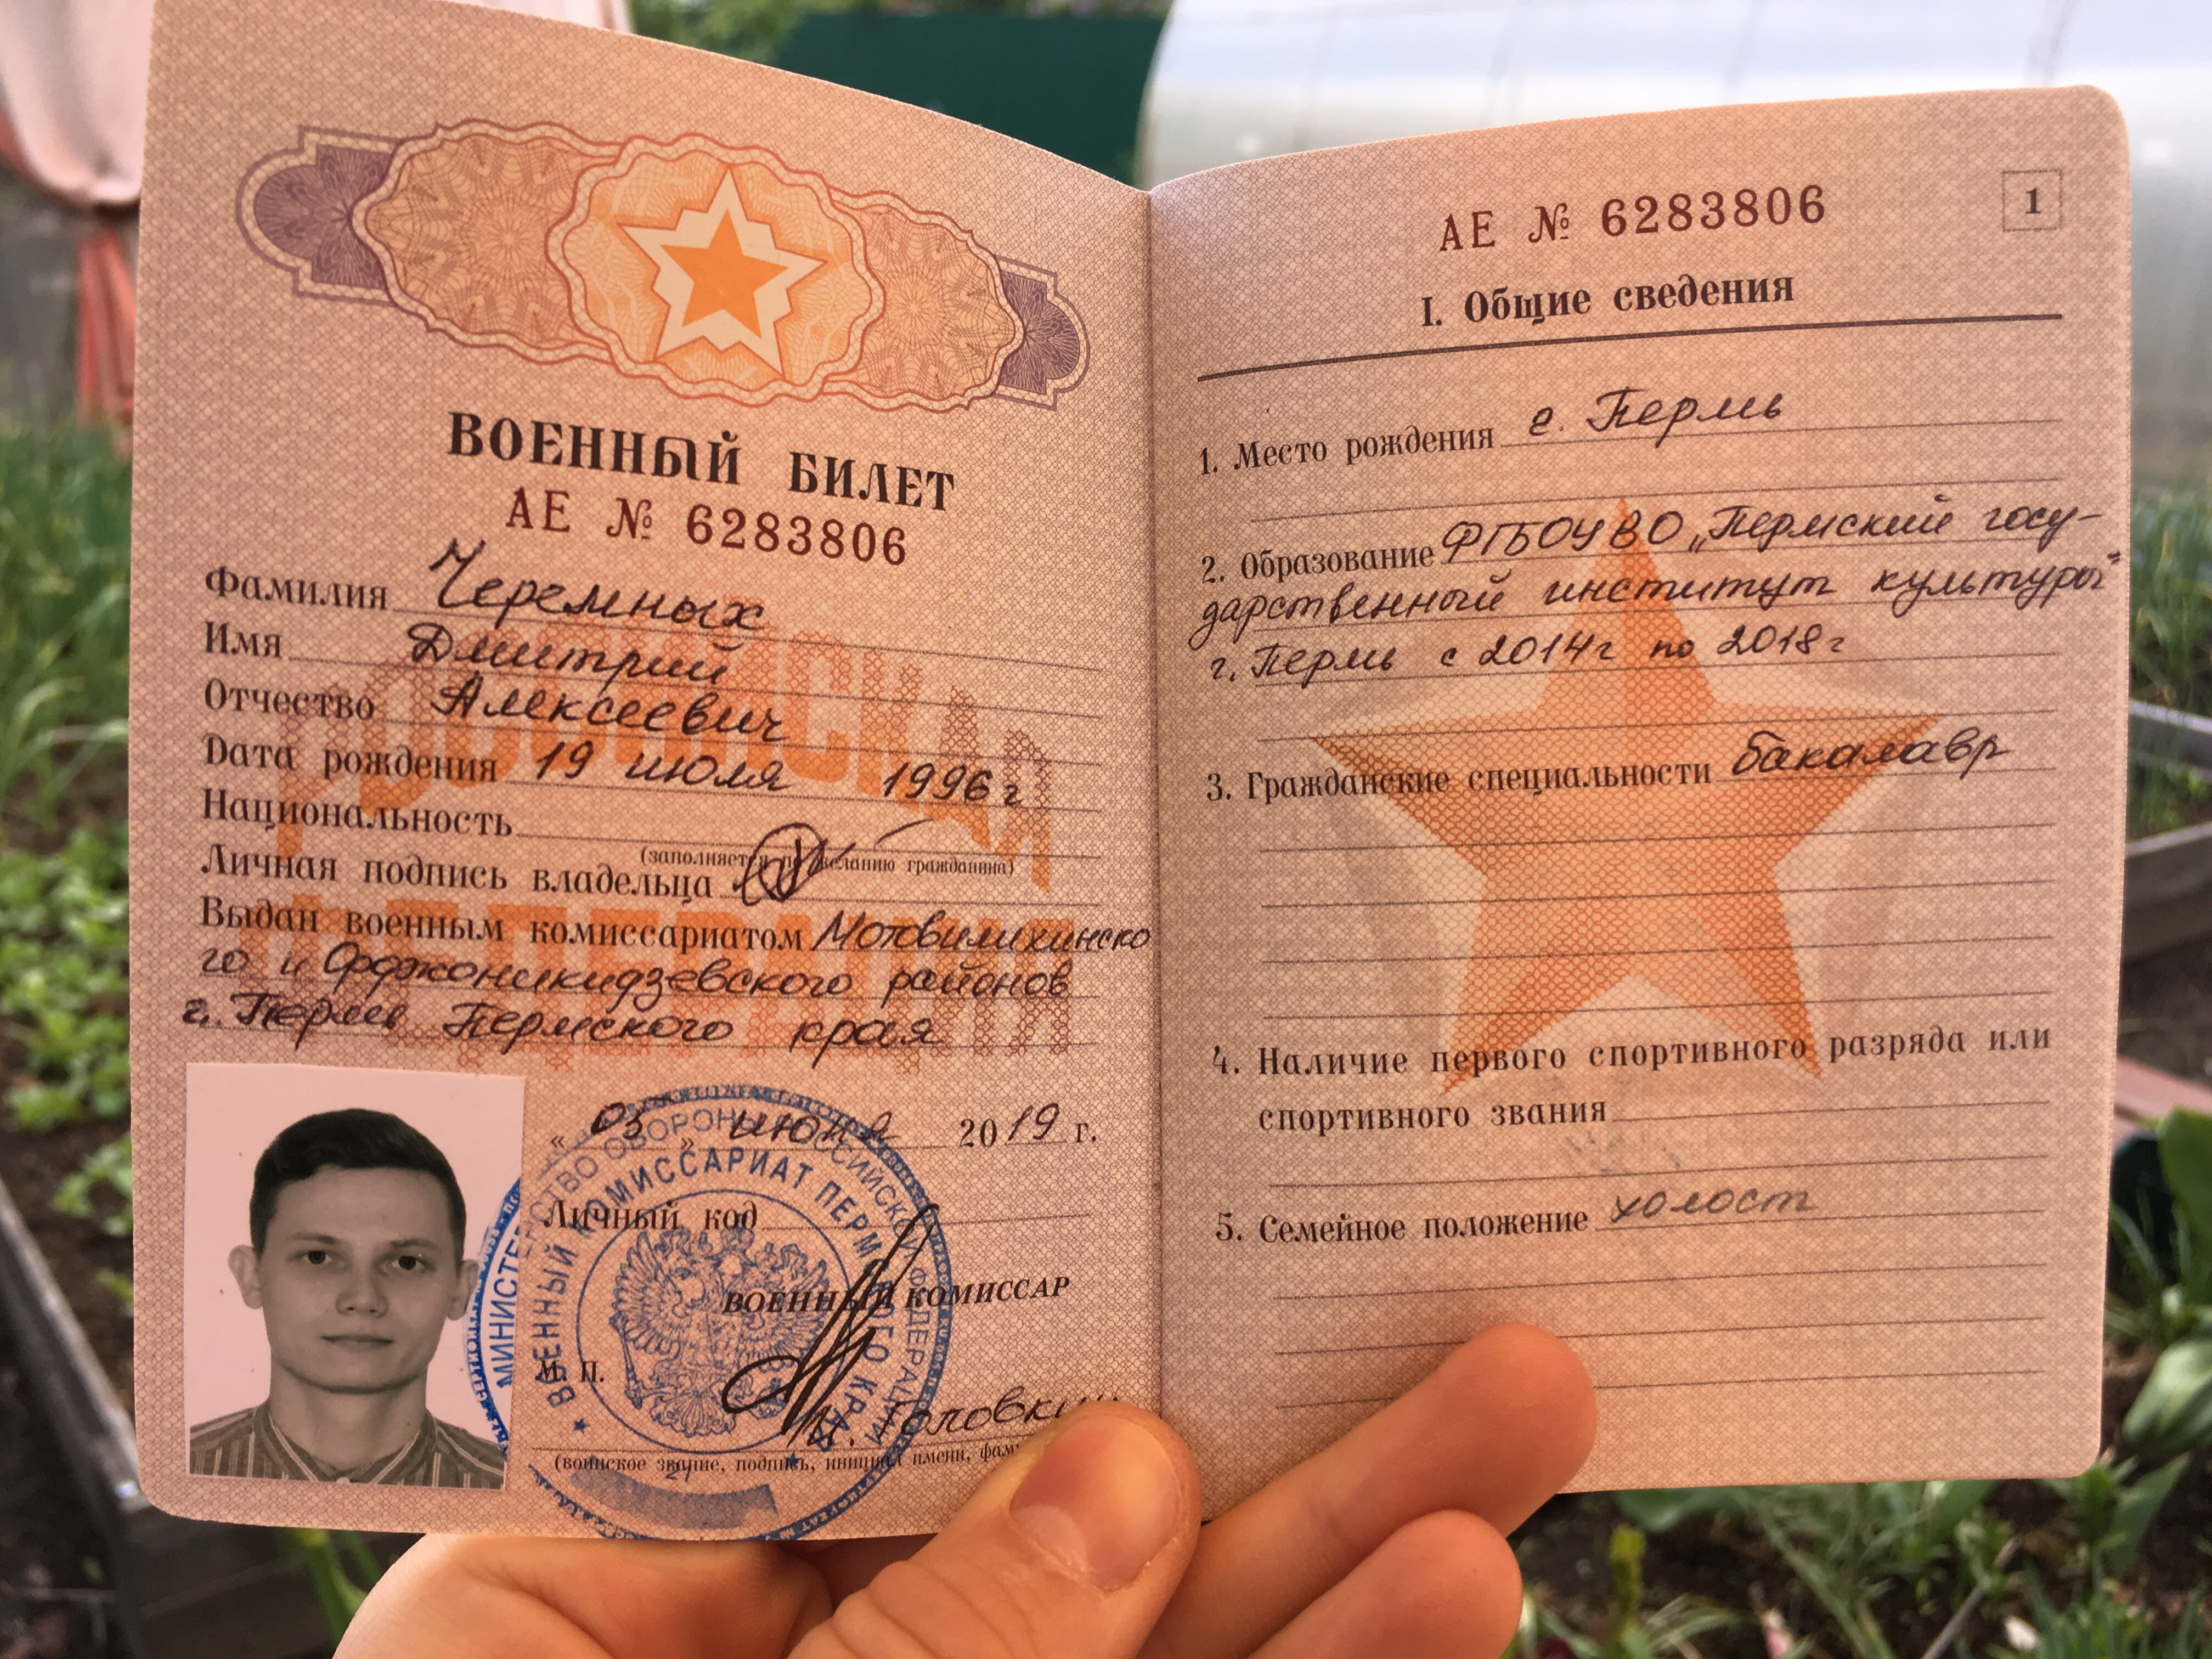 ВОЕННЫЙ БИЛЕТ
АЕ № 6283806
Фамилия Черемных
Имя Дмитрий
Отчество Алексеевич
Дата рождения 19 июля 1996 г
Национальность
(заполняется по желанию гражданина)
Личная подпись владельца
Выдан военным комиссариатом Мотовилихинско
го и Орджоникидзевского районов
г. Пермь Пермского края
« 03 » июня 2019 г.
Личный код
ВОЕННЫЙ КОМИССАР
М. П.
Головкин
(воинское звание, подпись, инициал имени,
МИНИСТЕРСТВО ОБОРОНЫ РОССИЙСКОЙ ФЕДЕРАЦИИ
ВОЕННЫЙ КОМИССАРИАТ ПЕРМСКОГО КРАЯ
РОССИЙСКАЯ
ФЕДЕРАЦИЯ
АЕ № 6283806
1
I. Общие сведения
1. Место рождения г. Пермь
2. Образование ФГБОУ ВО „Пермский госу-
дарственный институт культуры"
г. Пермь с 2014г по 2018г
3. Гражданские специальности бакалавр
4. Наличие первого спортивного разряда или
спортивного звания
5. Семейное положение холост